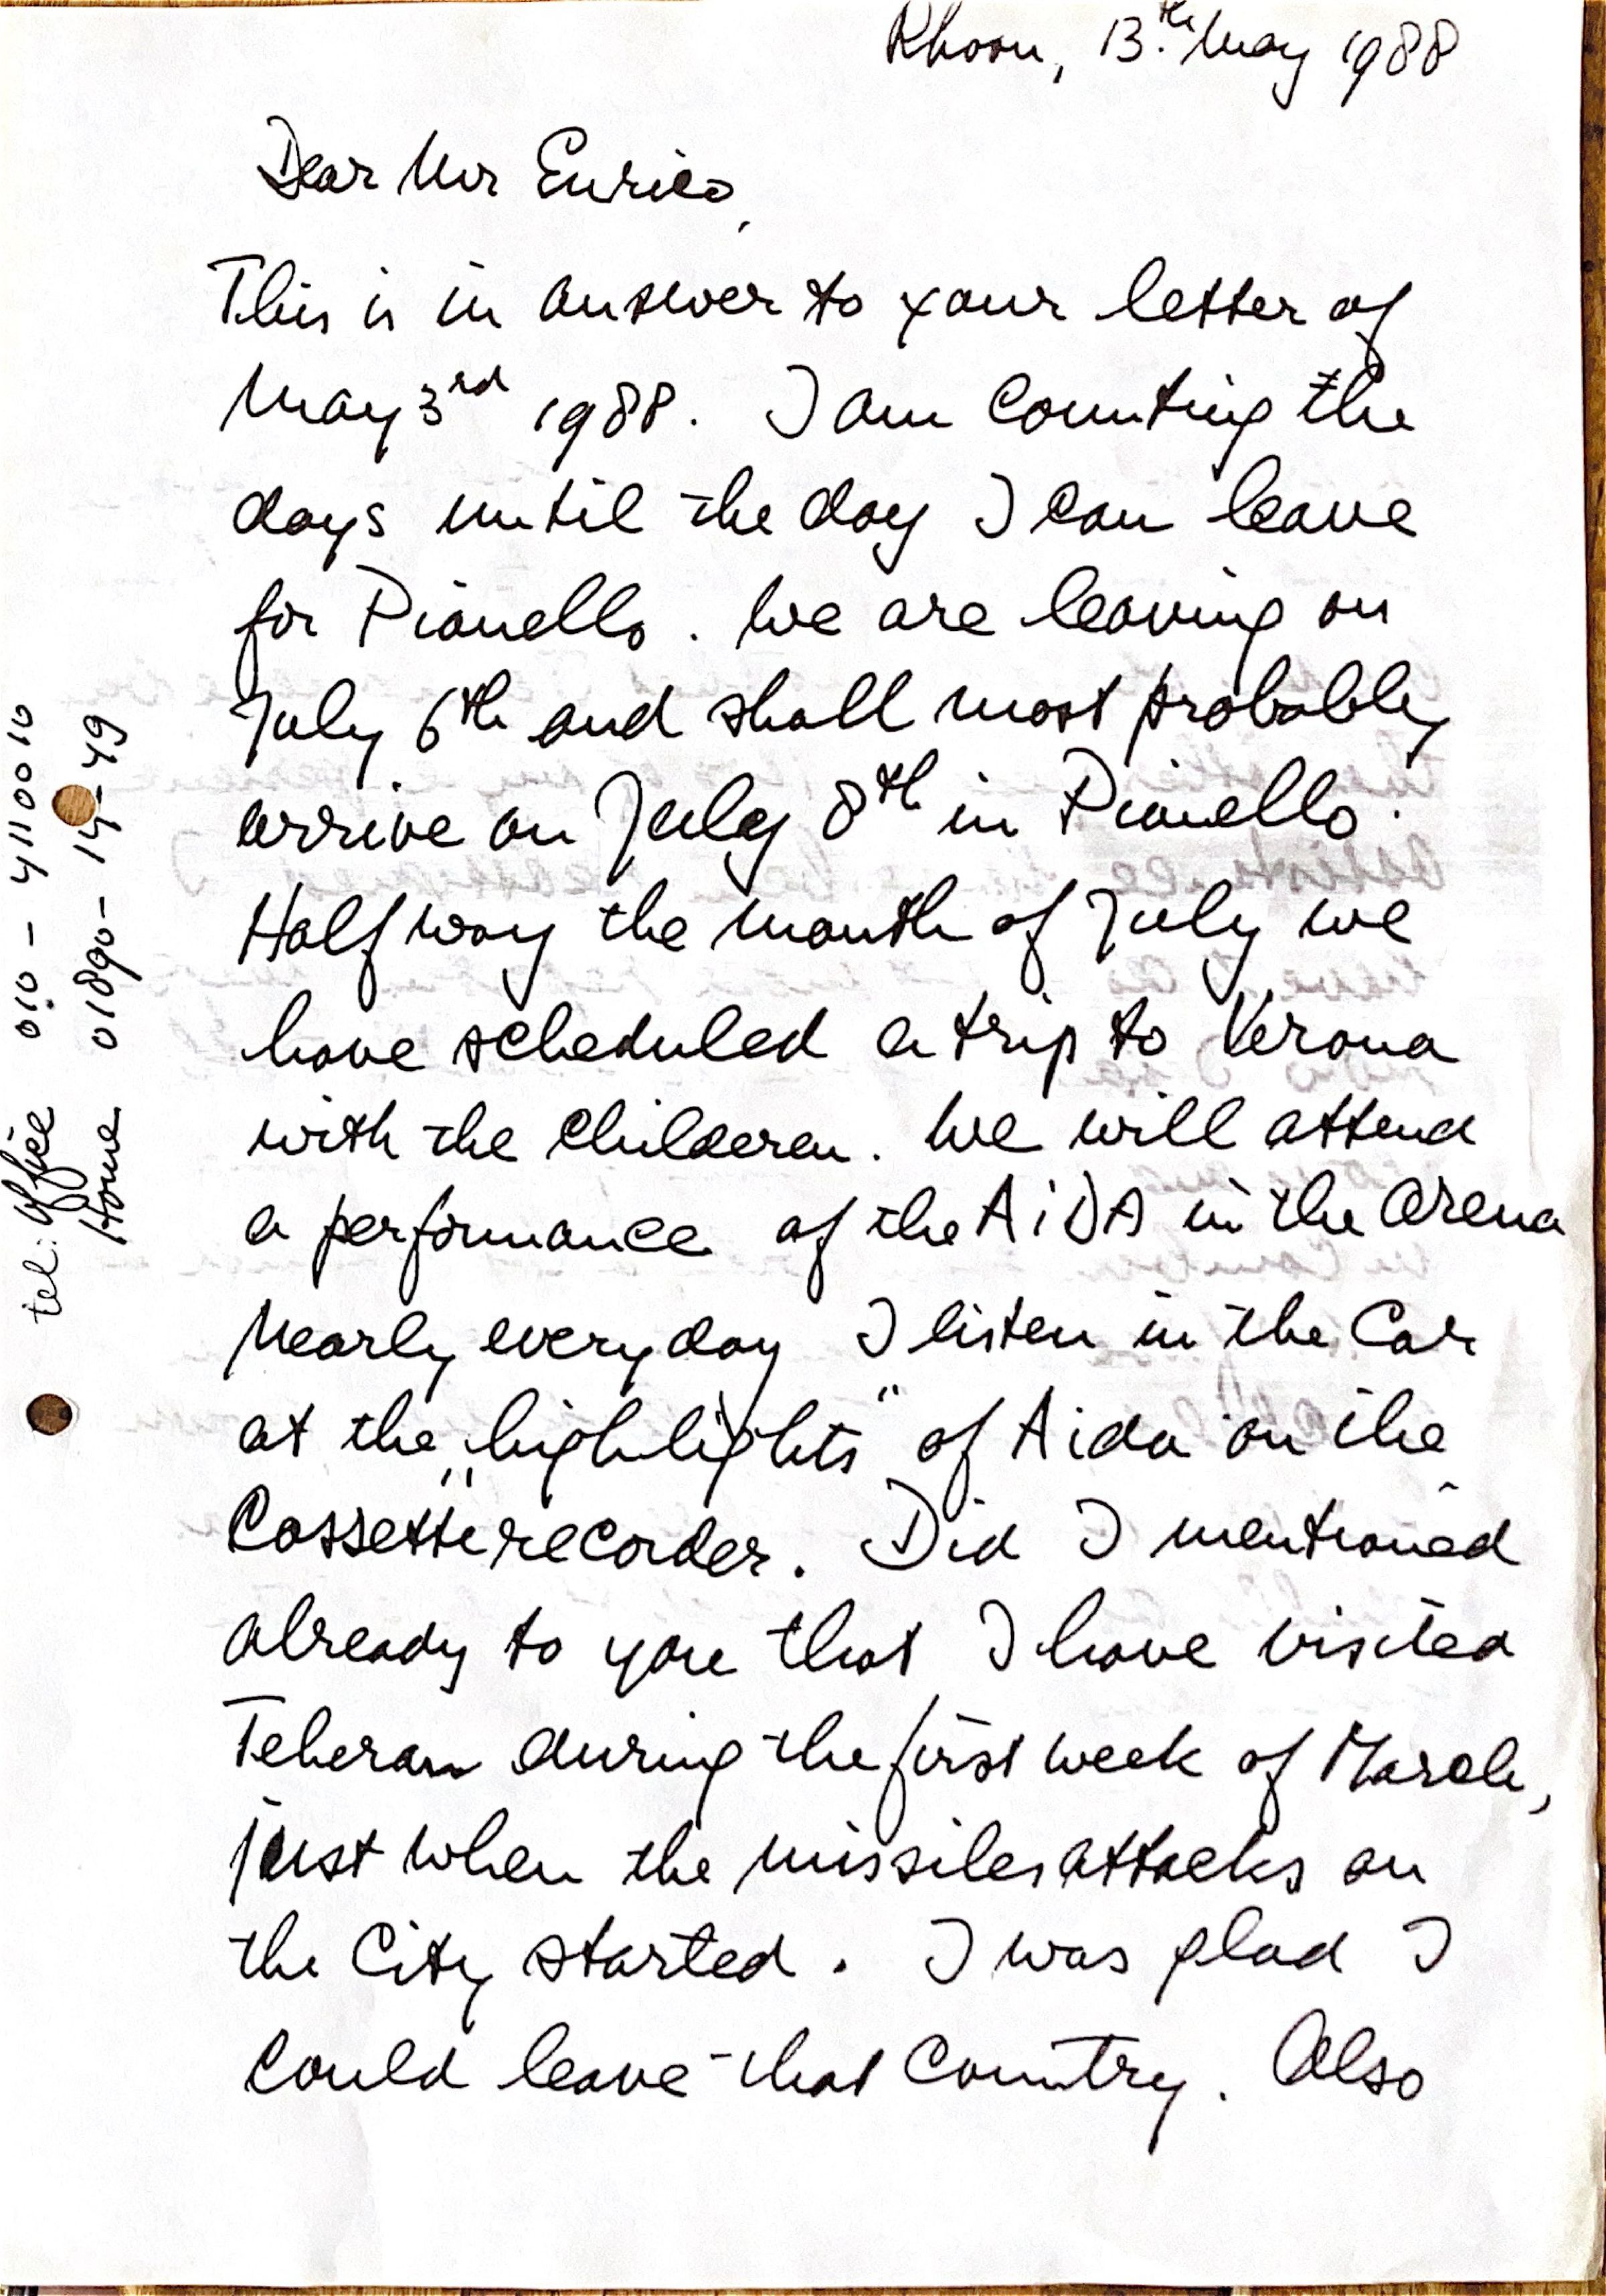 Rhoon, 13.th May 1988
Dear Mr Enrico,
This is in answer to your letter of
May 3rd 1988. I am counting the
days until the day I can leave
for Pianello. We are leaving on
July 6th and shall most probabley
arrive on July 8th in Pianello.
Half way the month of July we
have scheduled a trip to Verona
with the childeren. We will attend
a performance of the AiDA in the arena
Nearly every day I listen in the Car
at the „highlights" of Aida on the
Cassetterecorder. Did I mentioned
already to you that I have visited
Teheran during the first week of March,
just when the missiles attacks on
the City started. I was glad I
could leave that Country. Also
tel: office 010 - 4110010
Home 01890 - 14-49